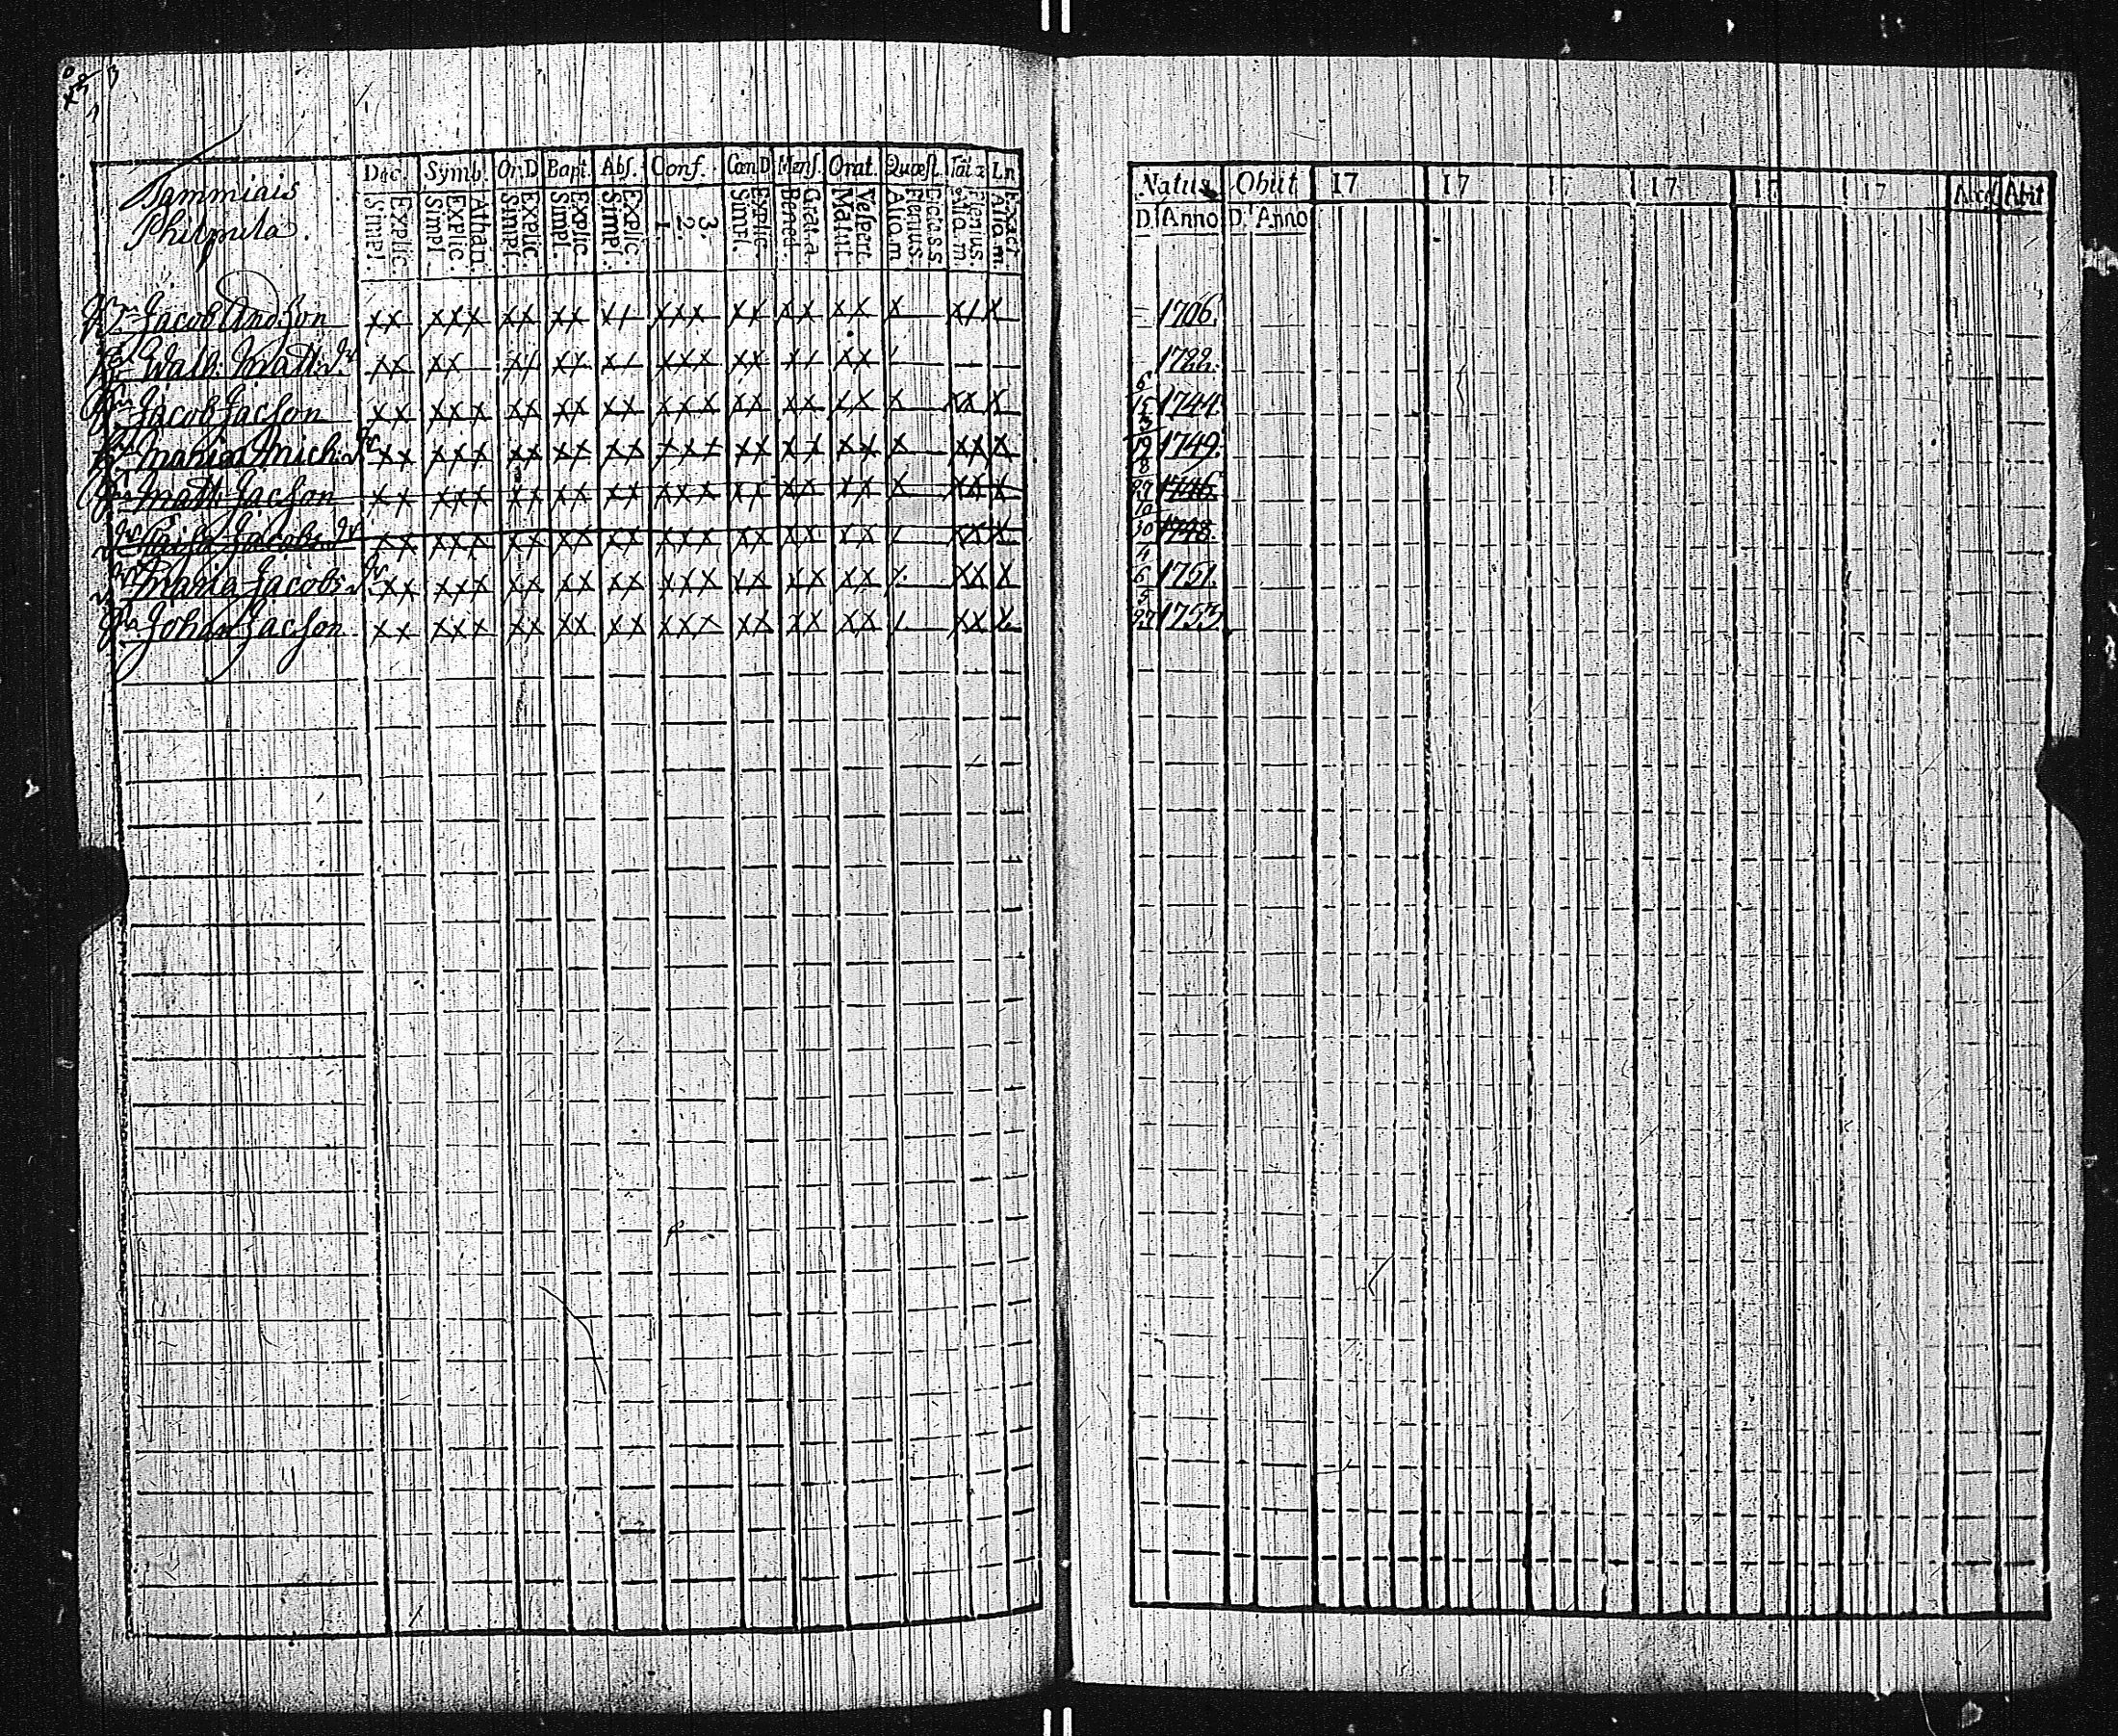 Tammiais
Philpula.
Dec. Symb. Or.D Bapt. Abs. Conf. Can D Mens. Orat. Quæst. Ln
Simpl. Explic. Simpl. Explic. Athan. Simpl. Explic. Simpl. Explic. Simpl. Explic. 1. 2. 3. Simpl. Explic. Bened. Matut. Vespert. Plenius Plenius. Exact
Natus Obiit 17 17 17 17 17 17 Acces Abiit
D. Anno D. Anno
Jacob And:son xx xxx xx xx xxx xx xx xx x
1706.
Walb. Matt: dr. xx xx xx xxx xx xx
Jacob Jacson xx xxx xx xx xx xxx xx xx xx x xx x
1744.
Maria Mich: dr xx xxx xx xx xx xxx xx xx xx x xx x
1749.
Matt. Jacson xx xxx xx xx xx xxx xx xx xx x xx x
Jacobs dr xx xxx xx xx xx xxx xx xx xx xx x
30
Maria Jacobs dr xx xxx xx xx xx xxx xx xx xx xx x
6 1751.
Johan Jacson xx xxx xx xx xx xxx xx xx xx xx x
1753.